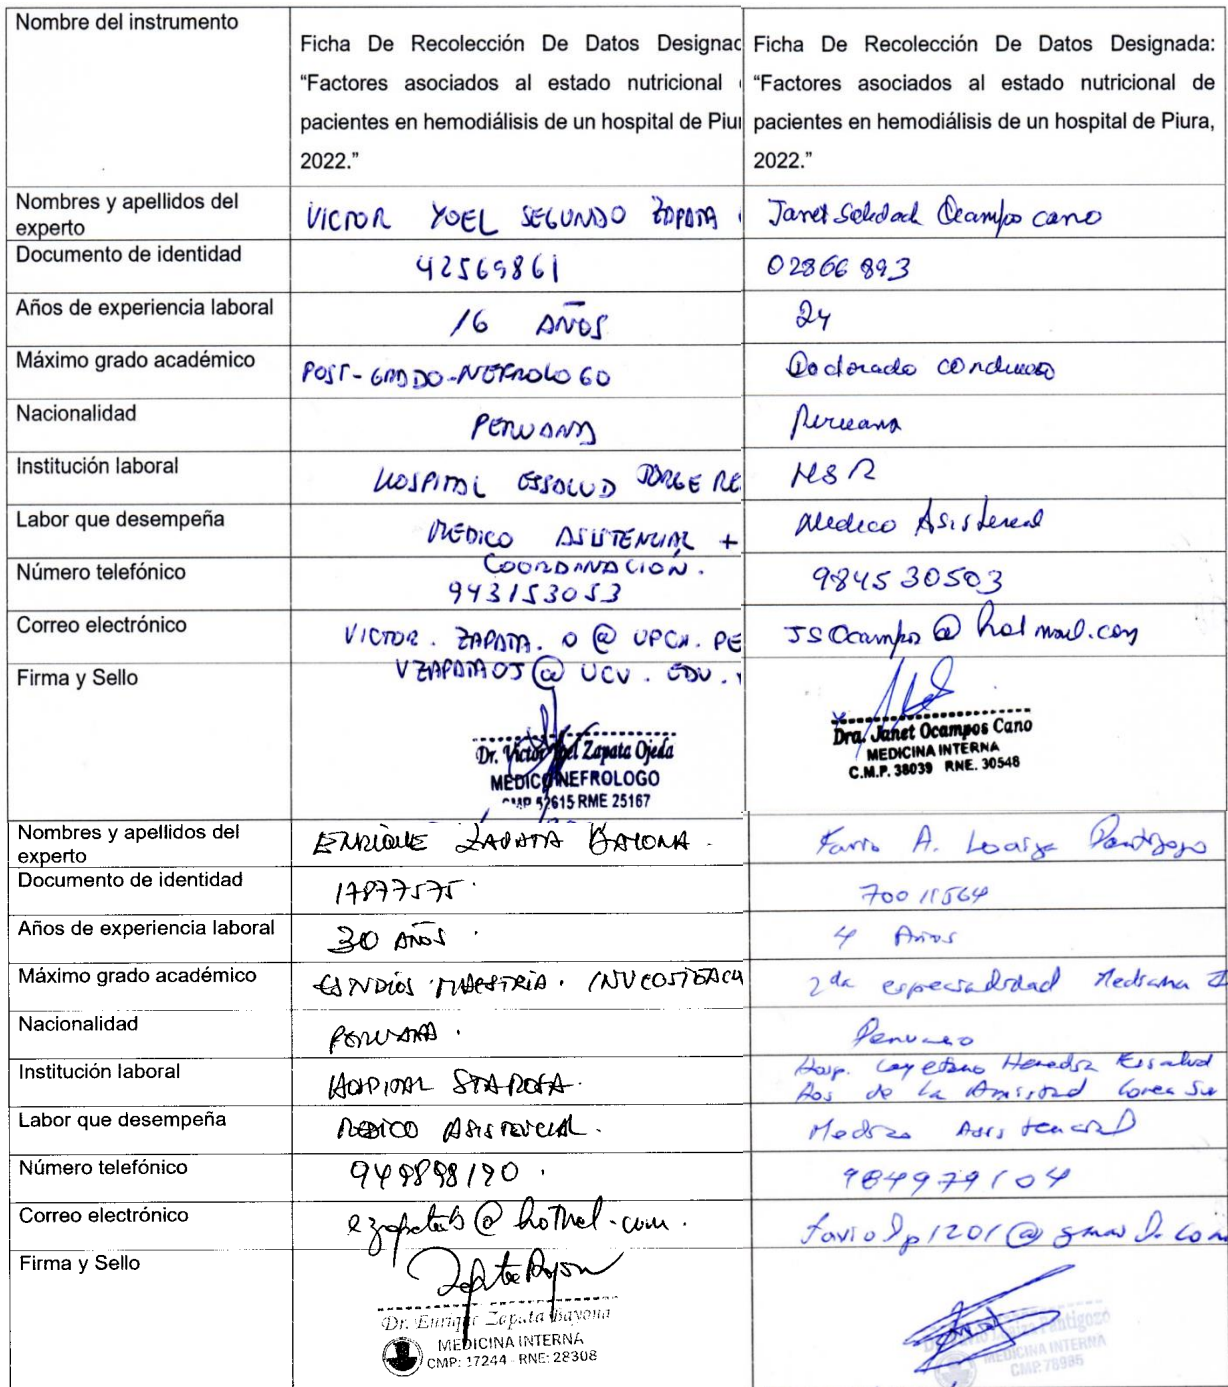 Nombre del instrumento
Ficha De Recolección De Datos Designad
“Factores asociados al estado nutricional
pacientes en hemodiálisis de un hospital de Piu
2022.”
Ficha De Recolección De Datos Designada:
“Factores asociados al estado nutricional de
pacientes en hemodiálisis de un hospital de Piura,
2022.”
Nombres y apellidos del
experto
VICTOR YOEL SEGUNDO ZAPATA
Janet Soledad Ocampos Cano
Documento de identidad
42569861
02866893
Años de experiencia laboral
16 AÑOS
24
Máximo grado académico
POST-GRADO-NEFROLOGO
Doctorado concluso
Nacionalidad
PERUANA
Peruana
Institución laboral
HOSPITAL ESSALUD JORGE RE
HSR
Labor que desempeña
MEDICO ASISTENCIAL +
COORDINACIÓN.
Medico Asistencial
Número telefónico
943153053
984530503
Correo electrónico
VICTOR.ZAPATA.O@UPCH.PE
VZAPATAOJ@UCV.EDU.
JSOcampos@hotmail.com
Firma y Sello
Dr. Victor Yoel Zapata Ojeda
MEDICO NEFROLOGO
CMP 52615 RME 25167
Dra. Janet Ocampos Cano
MEDICINA INTERNA
C.M.P. 38039 RNE. 30548
Nombres y apellidos del
experto
ENRIQUE ZAPATA BAYONA.
Favio A. Loaiza Pantigozo
Documento de identidad
17877575.
70011564
Años de experiencia laboral
30 AÑOS.
4 Años
Máximo grado académico
ESTUDIOS MAESTRIA.
2da especialidad Medicina I
Nacionalidad
PERUANA.
Peruano
Institución laboral
HOSPITAL STA ROSA.
Hosp. Cayetano Heredia Essalud
Hos de la Amistad Corea Su
Labor que desempeña
MEDICO ASISTENCIAL.
Medico Asistencial
Número telefónico
949898190.
984979104
Correo electrónico
Faviolp1201@gmail.com
Firma y Sello
Dr. Enrique Zapata Bayona
MEDICINA INTERNA
CMP: 17244 - RNE: 28308
Pantigozo
MEDICINA INTERNA
CMP. 78986